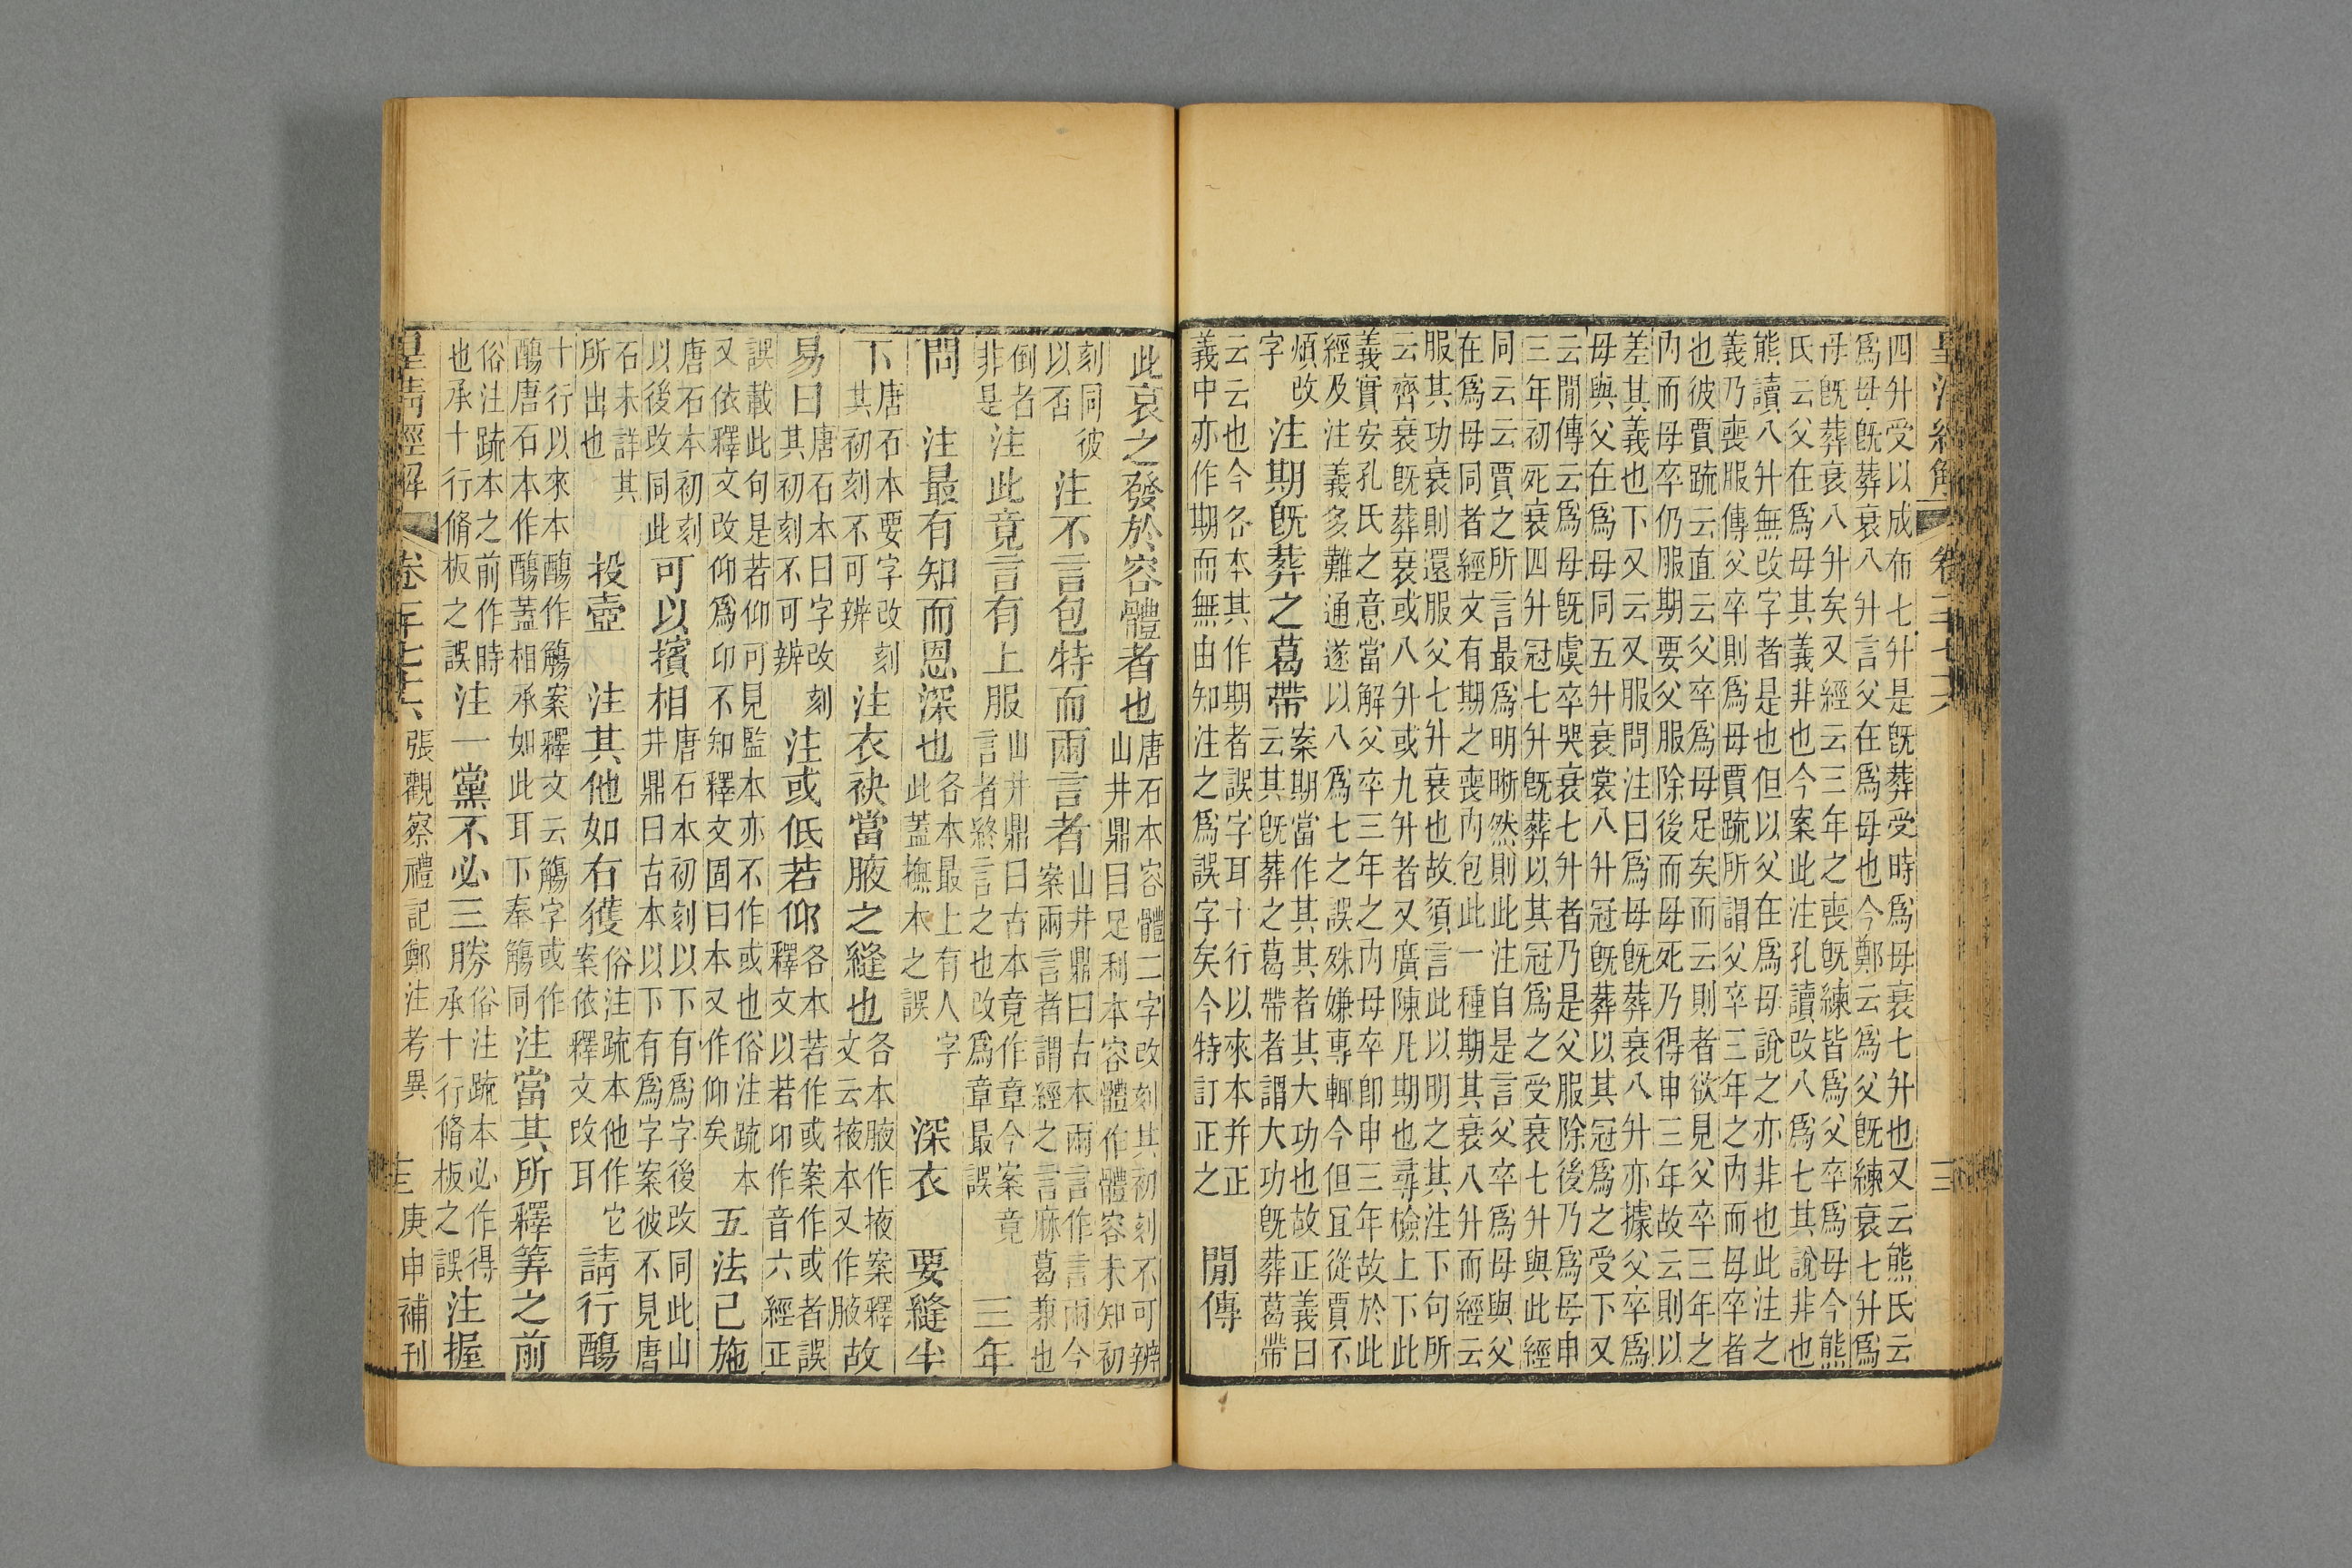 皇清經解 卷千七十六 三
四升受以成布七升是既葬受時爲母衰七升也又云熊氏云
爲母既葬衰八升言父在爲母也今鄭云爲父既練衰七升爲
母既葬衰八升矣又經云三年之喪既練皆爲父卒爲母今熊
氏云父在爲母其義非也今案此注孔讀改八爲七其說非也
熊讀八升無改字者是也但以父在爲母說之亦非也此注之
義乃喪服傳父卒則爲母賈疏所謂父卒三年之內而母卒者
也彼賈疏云直云父卒爲母足矣而云則者欲見父卒三年之
內而母卒仍服期要父服除後而母死乃得申三年故云則以
差其義也下又云又服問注曰爲母既葬衰八升亦據父卒爲
母與父在爲母同五升衰裳八升冠既葬以其冠爲之受下又
云閒傳云爲母既虞卒哭衰七升者乃是父服除後乃爲母申
三年初死衰四升冠七升既葬以其冠爲之受衰七升與此經
同云云賈之所言最爲明晰然則此注自是言父卒爲母與父
在爲母同者經文有期之喪內包此一種期其衰八升而經云
服其功衰則還服父七升衰也故須言此以明之其注下句所
云齊衰既葬衰或八升或九升者又廣陳凡期也尋檢上下此
義實安孔氏之意當解父卒三年之內母卒卽申三年故於此
經及注義多難通遂以八爲七之誤殊嫌專輒今但宜從賈不
煩改字 注期既葬之葛帶 案期當作其其者其大功也故正義曰云其既葬之葛帶者謂大功既葬葛帶
云云也今各本其作期者誤字耳十行以來本并正義中亦作期而無由知注之爲誤字矣今特訂正之 閒傳
此哀之發於容體者也 唐石本容體二字改刻其初刻不可辨山井鼎曰足利本容體作體容未知初
刻同彼以否 注不言包特而兩言者 山井鼎曰古本兩言作言兩今案兩言者謂經之言麻葛兼也
倒者非是 注此竟言有上服 山井鼎曰古本竟作章今案竟言者終言之也改爲章最誤 三年
問 注最有知而恩深也 各本最上有人字此蓋撫本之誤 深衣 要縫半
下 唐石本要字改刻其初刻不可辨 注衣袂當腋之縫也 各本腋作掖案釋文云掖本又作腋 故
易曰 唐石本曰字改刻其初刻不可辨 注或低若仰 各本若作或案作或者誤釋文以若卬作音六經正
誤載此句是若仰可見監本亦不作或也俗注疏本又依釋文改仰爲卬不知釋文固曰本又作仰矣 五法已施
唐石本初刻以後改同此 可以擯相 唐石本初刻以下有爲字後改同此山井鼎曰古本以下有爲字案彼不見唐
石未詳其所出也 投壺 注其他如右獲 俗注疏本他作它案依釋文改耳 請行𨢩
十行以來本𨢩作觴案釋文云觴字或作𨢩唐石本作𨢩蓋相承如此耳下奉觴同 注當其所釋筭之前
俗注疏本之前作時也承十行脩板之誤 注一黨不必三勝 俗注疏本必作得承十行脩板之誤 注握
皇清經解 卷千七十六 張觀察禮記鄭注考異 三 庚申補刊